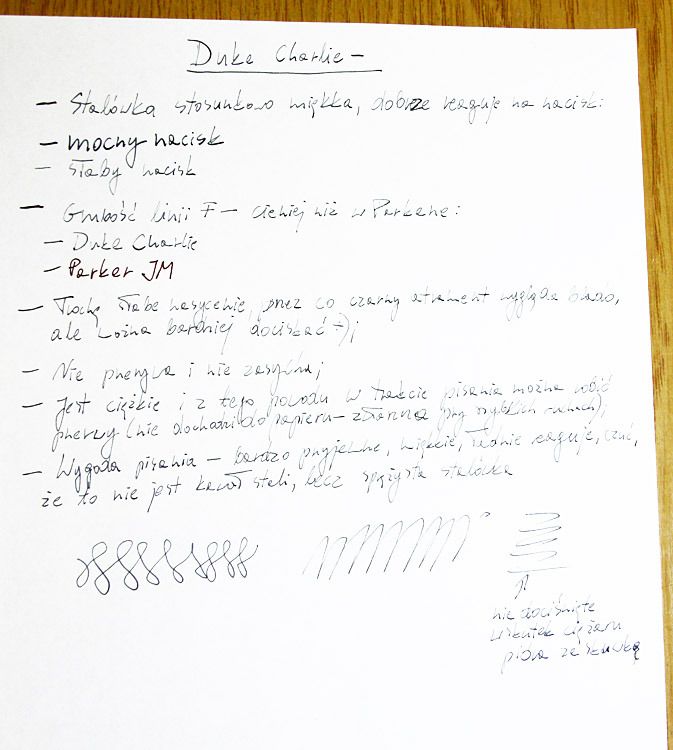 Duke Charlie –
– Stalówka stosunkowo miękka, dobrze reaguje na nacisk:
– mocny nacisk
– słaby nacisk
– Grubość linii F – cieniej niż w Parkerze:
– Duke Charlie
– Parker JM
– Trochę słabe nasycenie, przez co czarny atrament wygląda blado,
ale można bardziej dociskać =);
– Nie przerywa i nie zasycha;
– Jest ciężkie i z tego powodu w trakcie pisania można robić
przerwy (nie dochodzi do papieru – zdarza się przy szybkich ruchach);
– Wygoda pisania – bardzo przyjemne, miękkie, ładnie reaguje, czuć,
że to nie jest kawał stali, lecz sprężysta stalówka
nie dociśnięte
wskutek ciężaru
pióra ze skuwką